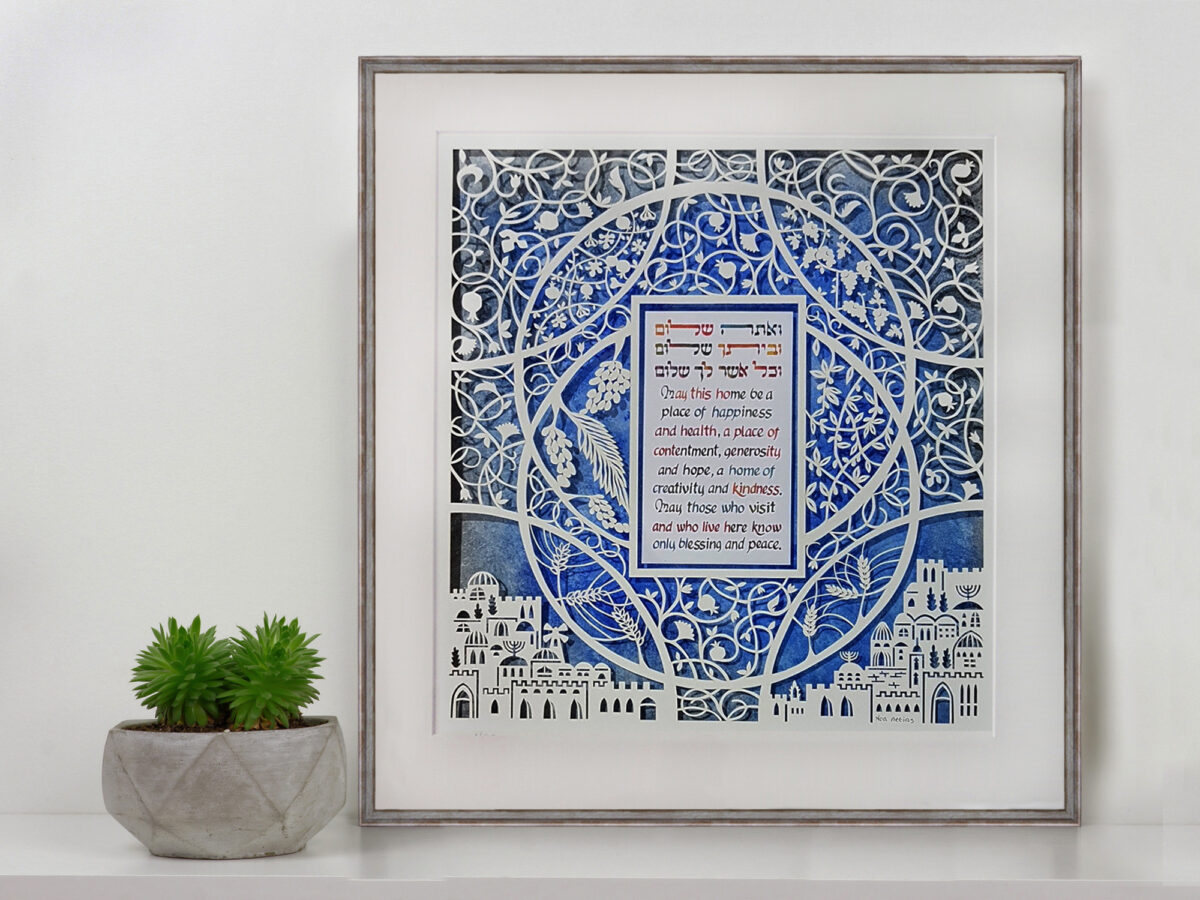 ואתה שלום
וביתך שלום
וכל אשר לך שלום
May this home be a
place of happiness
and health, a place of
contentment, generosity
and hope, a home of
creativity and kindness.
May those who visit
and who live here know
only blessing and peace.